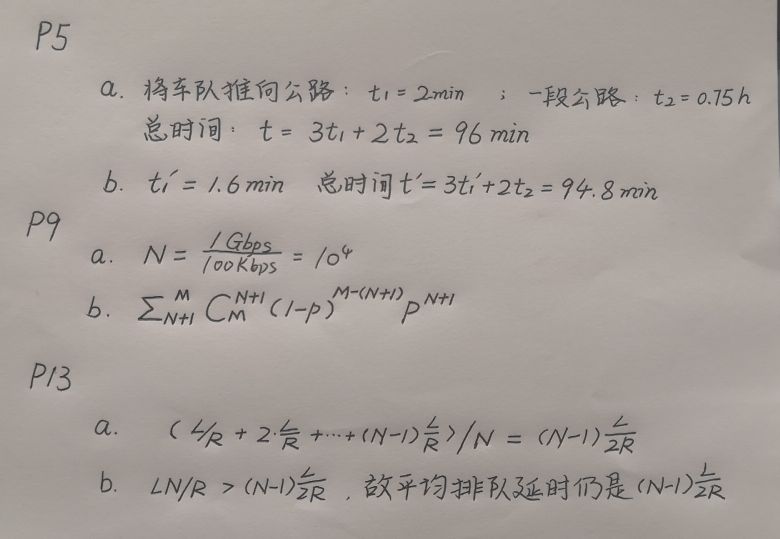 P5
a. 将车队推向公路: t₁ = 2min ; 一段公路: t₂ = 0.75h
总时间: t = 3t₁ + 2t₂ = 96 min
b. t₁′ = 1.6 min 总时间 t′ = 3t₁′ + 2t₂ = 94.8 min
P9
a. N = 1Gbps/100Kbps = 10⁴
b. ∑_{N+1}^{M} C_M^{N+1} (1-p)^{M-(N+1)} p^{N+1}
P13
a. (L/R + 2·L/R + ⋯ + (N-1) L/R)/N = (N-1) L/2R
b. LN/R > (N-1) L/2R , 故平均排队延时仍是 (N-1) L/2R